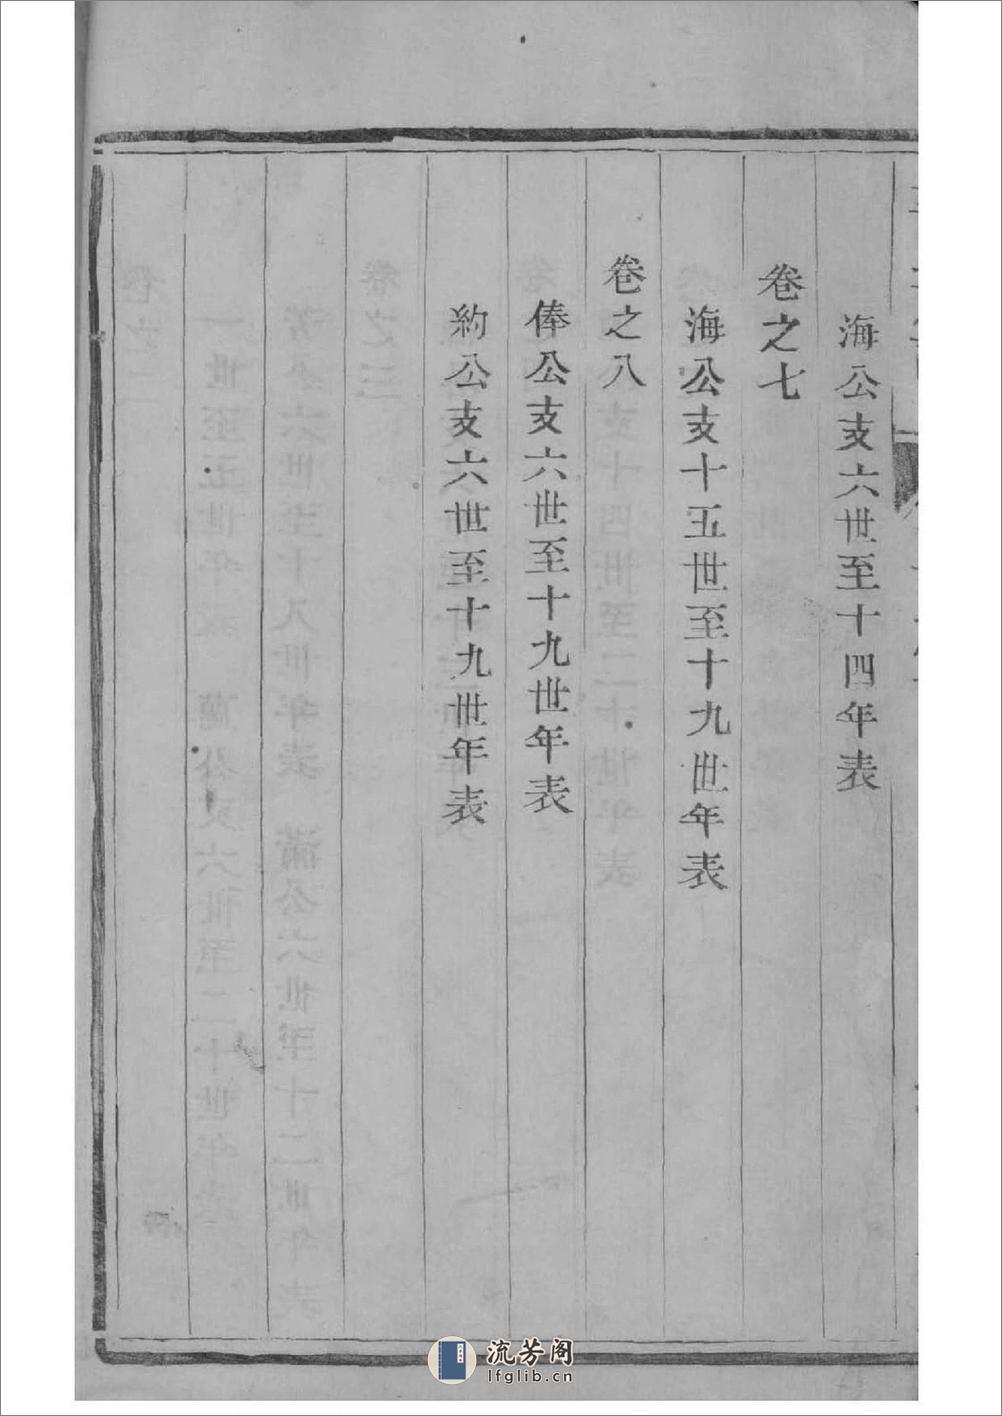 海公支六世至十四年表
卷之七
海公支十五世至十九世年表
卷之八
俸公支六世至十九世年表
約公支六世至十九世年表
流芳阁
lfglib.cn